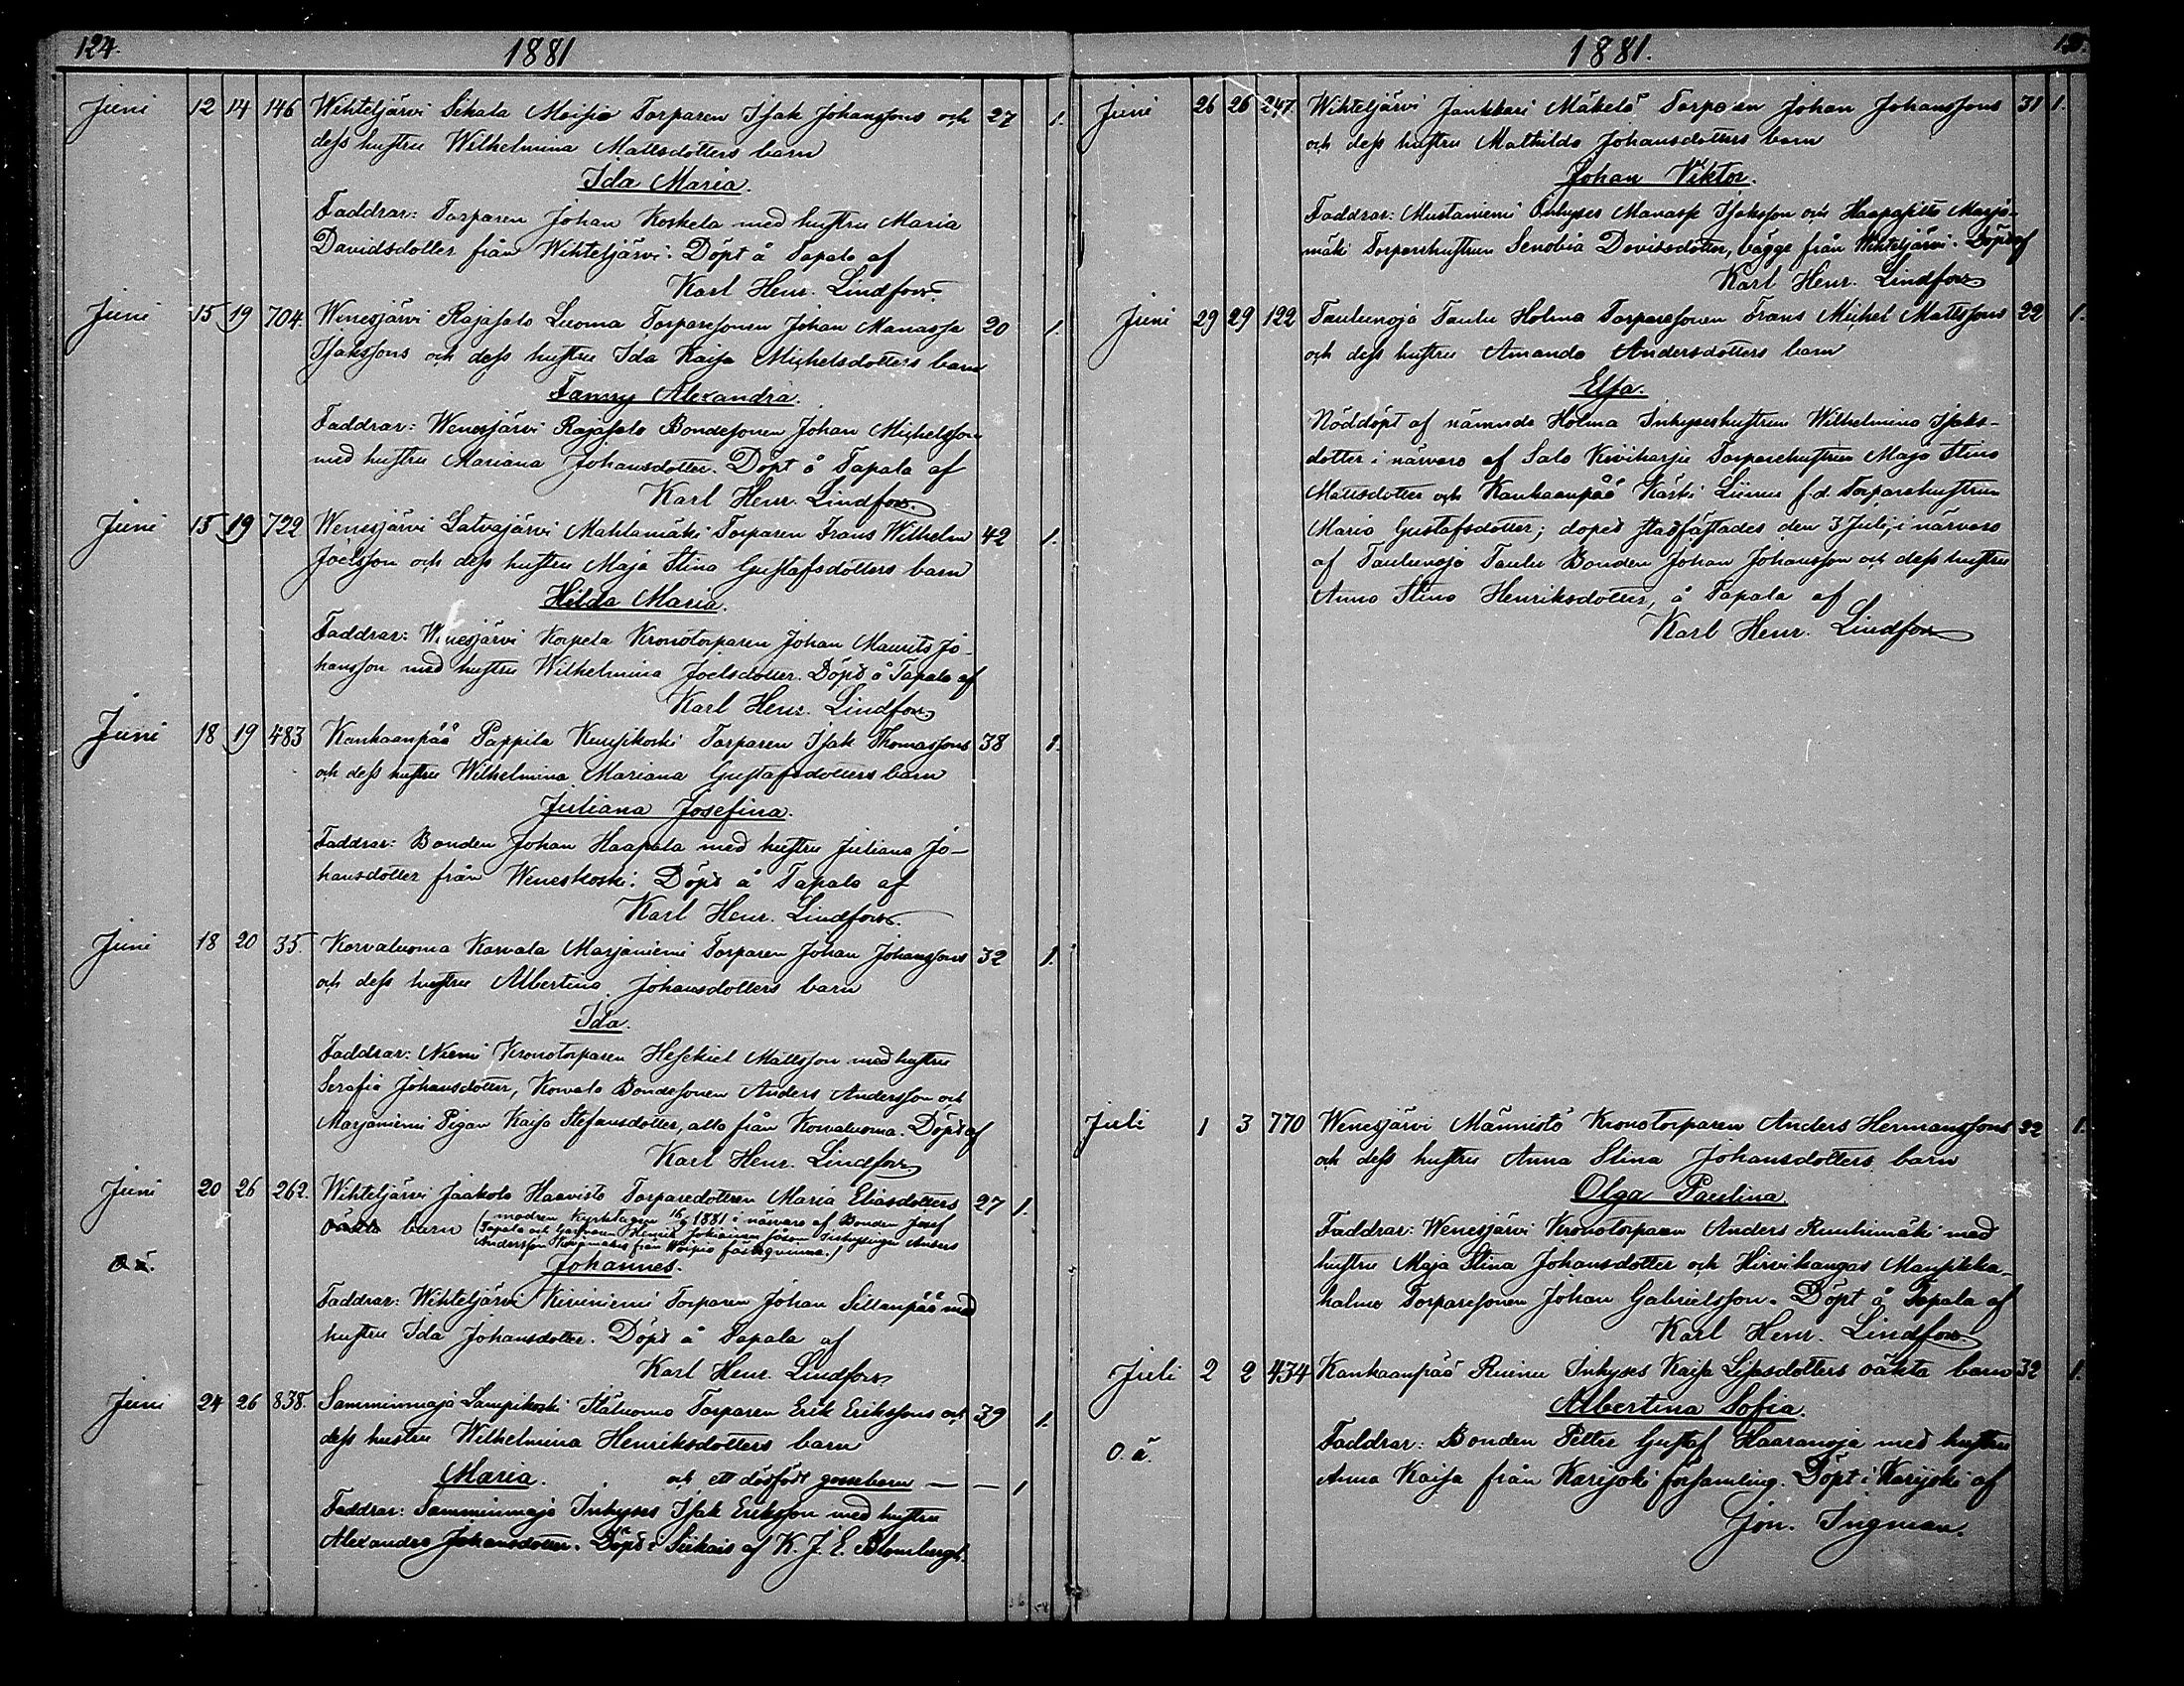 124.
1881
Juni 12 14 146 Wihteljärvi Sikala Moisio Torparen Isak Johanssons och 27 1.
dess hustru Wilhelmina Mattsdotters barn
Ida Maria.
Faddrar: Torparen Johan Koskela med hustru Maria
Davidsdotter från Wihteljärvi. Döpt å Tapala af
Karl Henr. Lindfors.
Juni 15 19 704. Wenesjärvi Rajasalo Luoma Torparesonen Johan Manasse 20 1.
Isakssons och dess hustru Ida Kaisa Michelsdotters barn
Fanny Alexandra.
Faddrar: Wenesjärvi Rajasalo Bondesonen Johan Michelsson
med hustru Mariana Johansdotter. Döpt å Tapala af
Karl Henr. Lindfors.
Juni 15 19 722 Wenesjärvi Latvajärvi Mahlamäki Torparen Frans Wilhelm 42 1.
Joelsson och dess hustru Maja Stina Gustafsdotters barn
Hilda Maria.
Faddrar: Wenesjärvi Korpela Kronotorparen Johan Maurits Jo-
hansson med hustru Wilhelmina Joelsdotter. Döpt å Tapala af
Karl Henr. Lindfors
Juni 18 19 483 Kankaanpää Pappila Kuusikoski Torparen Isak Thomassons 38 1.
och dess hustru Wilhelmina Mariana Gustafsdotters barn
Juliana Josefina.
Faddrar: Bonden Johan Haapala med hustru Juliana Jo-
hansdotter från Weneskoski. Döpt å Tapala af
Karl Henr. Lindfors.
Juni 18 20 35. Korvaluoma Korvala Marjaniemi Torparen Johan Johanssons 32 1.
och dess hustru Albertina Johansdotters barn
Ida.
Faddrar: Niemi Kronotorparen Hesekiel Mattsson med hustru
Serafia Johansdotter, Korvala Bondesonen Anders Andersson och
Marjaniemi Pigan Kaisa Stefansdotter, alla från Korvaluoma. Döpt af
Karl Henr. Lindfors
Juni 20 26 262. Wihteljärvi Jaakola Haavisto Torparedottren Maria Eliasdotters 27 1.
oäkta barn (modren kyrktagen 16/9 1881 i närvaro af Bonden Josef
Tapala och Henrik såsom Inhysingen Anders
Andersson från Moisio fästeqvinna.)
O ä.
Johannes.
Faddrar: Wihteljärvi Kiviniemi Torparen Johan Sillanpää med
hustru Ida Johansdotter. Döpt å Tapala af
Karl Henr. Lindfors
Juni 24 26 838. Samminmaja Lampikoski Torparen Erik Erikssons och 39 1.
dess hustru Wilhelmina Henriksdotters barn
Maria. och ett dödfödt gossebarn — — 1
Faddrar: Samminmaja Inhyses Isak Eriksson med hustru
Alexandra Johansdotter. Döpt i Siikais af K. J. E. Blombergh.
1881.
Juni 26 26 247. Wihteljärvi Jankkari Mäkelä Torparen Johan Johanssons 31 1.
och dess hustru Mathilda Johansdotters barn
Johan Viktor.
Faddrar: Mustaniemi Inhyses Manasse Isaksson och Haapasillo Marja-
mäki Torparehustrun Senobia Davidsdotter, bägge från Wihteljärvi. Döpt af
Karl Henr. Lindfors
Juni 29 29 122 Taulunoja Taulu Holma Torparesonen Frans Michel Mattssons 22 1.
och dess hustru Amanda Andersdotters barn
Elsa.
Nöddöpt af nämnde Holma Inhyseshustrun Wilhelmina Isaks-
dotter i närvaro af Salo Kiviharju Torparehustrun Maja Stina
Mattsdotter och Kankaanpää Käski Liinu f.d. Torparehustrun
Maria Gustafsdotter; dopet stadfästades den 3 Juli, i närvaro
af Taulunoja Taulu Bonden Johan Johansson och dess hustru
Anna Stina Henriksdotter, å Tapala af
Karl Henr. Lindfors
Juli 1 3 770 Wenesjärvi Männistö Kronotorparen Anders Hermanssons 32 1.
och dess hustru Anna Stina Johansdotters barn
Olga Paulina
Faddrar: Wenesjärvi Kronotorparen Anders Ruuhimäki med
hustru Maja Stina Johansdotter och Hirvikangas Mansikka-
halme Torparesonen Johan Gabrielsson. Döpt å Tapala af
Karl Henr. Lindfors
Juli 2 2 434 Kankaanpää Ruinu Inhyses Kaisa Lisasdotters oäkta barn 32 1.
Albertina Sofia.
O. ä.
Faddrar: Bonden Petter Gustaf Haaranoja med hustru
Anna Kaisa från Karijoki församling. Döpt i Karijoki af
Jon. Ingman.